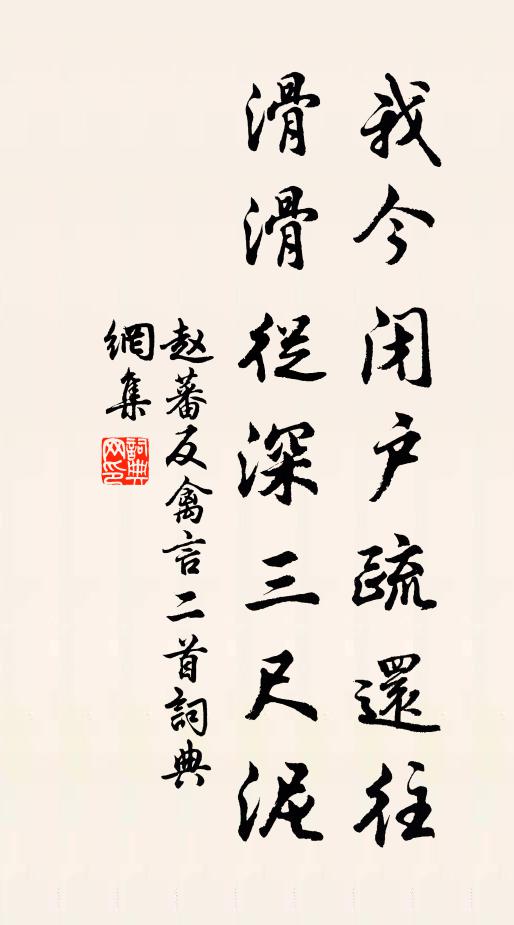 我今闭户疏還往
滑滑從深三尺泥
赵蕃反禽言二首詞典
網集
詞典网印